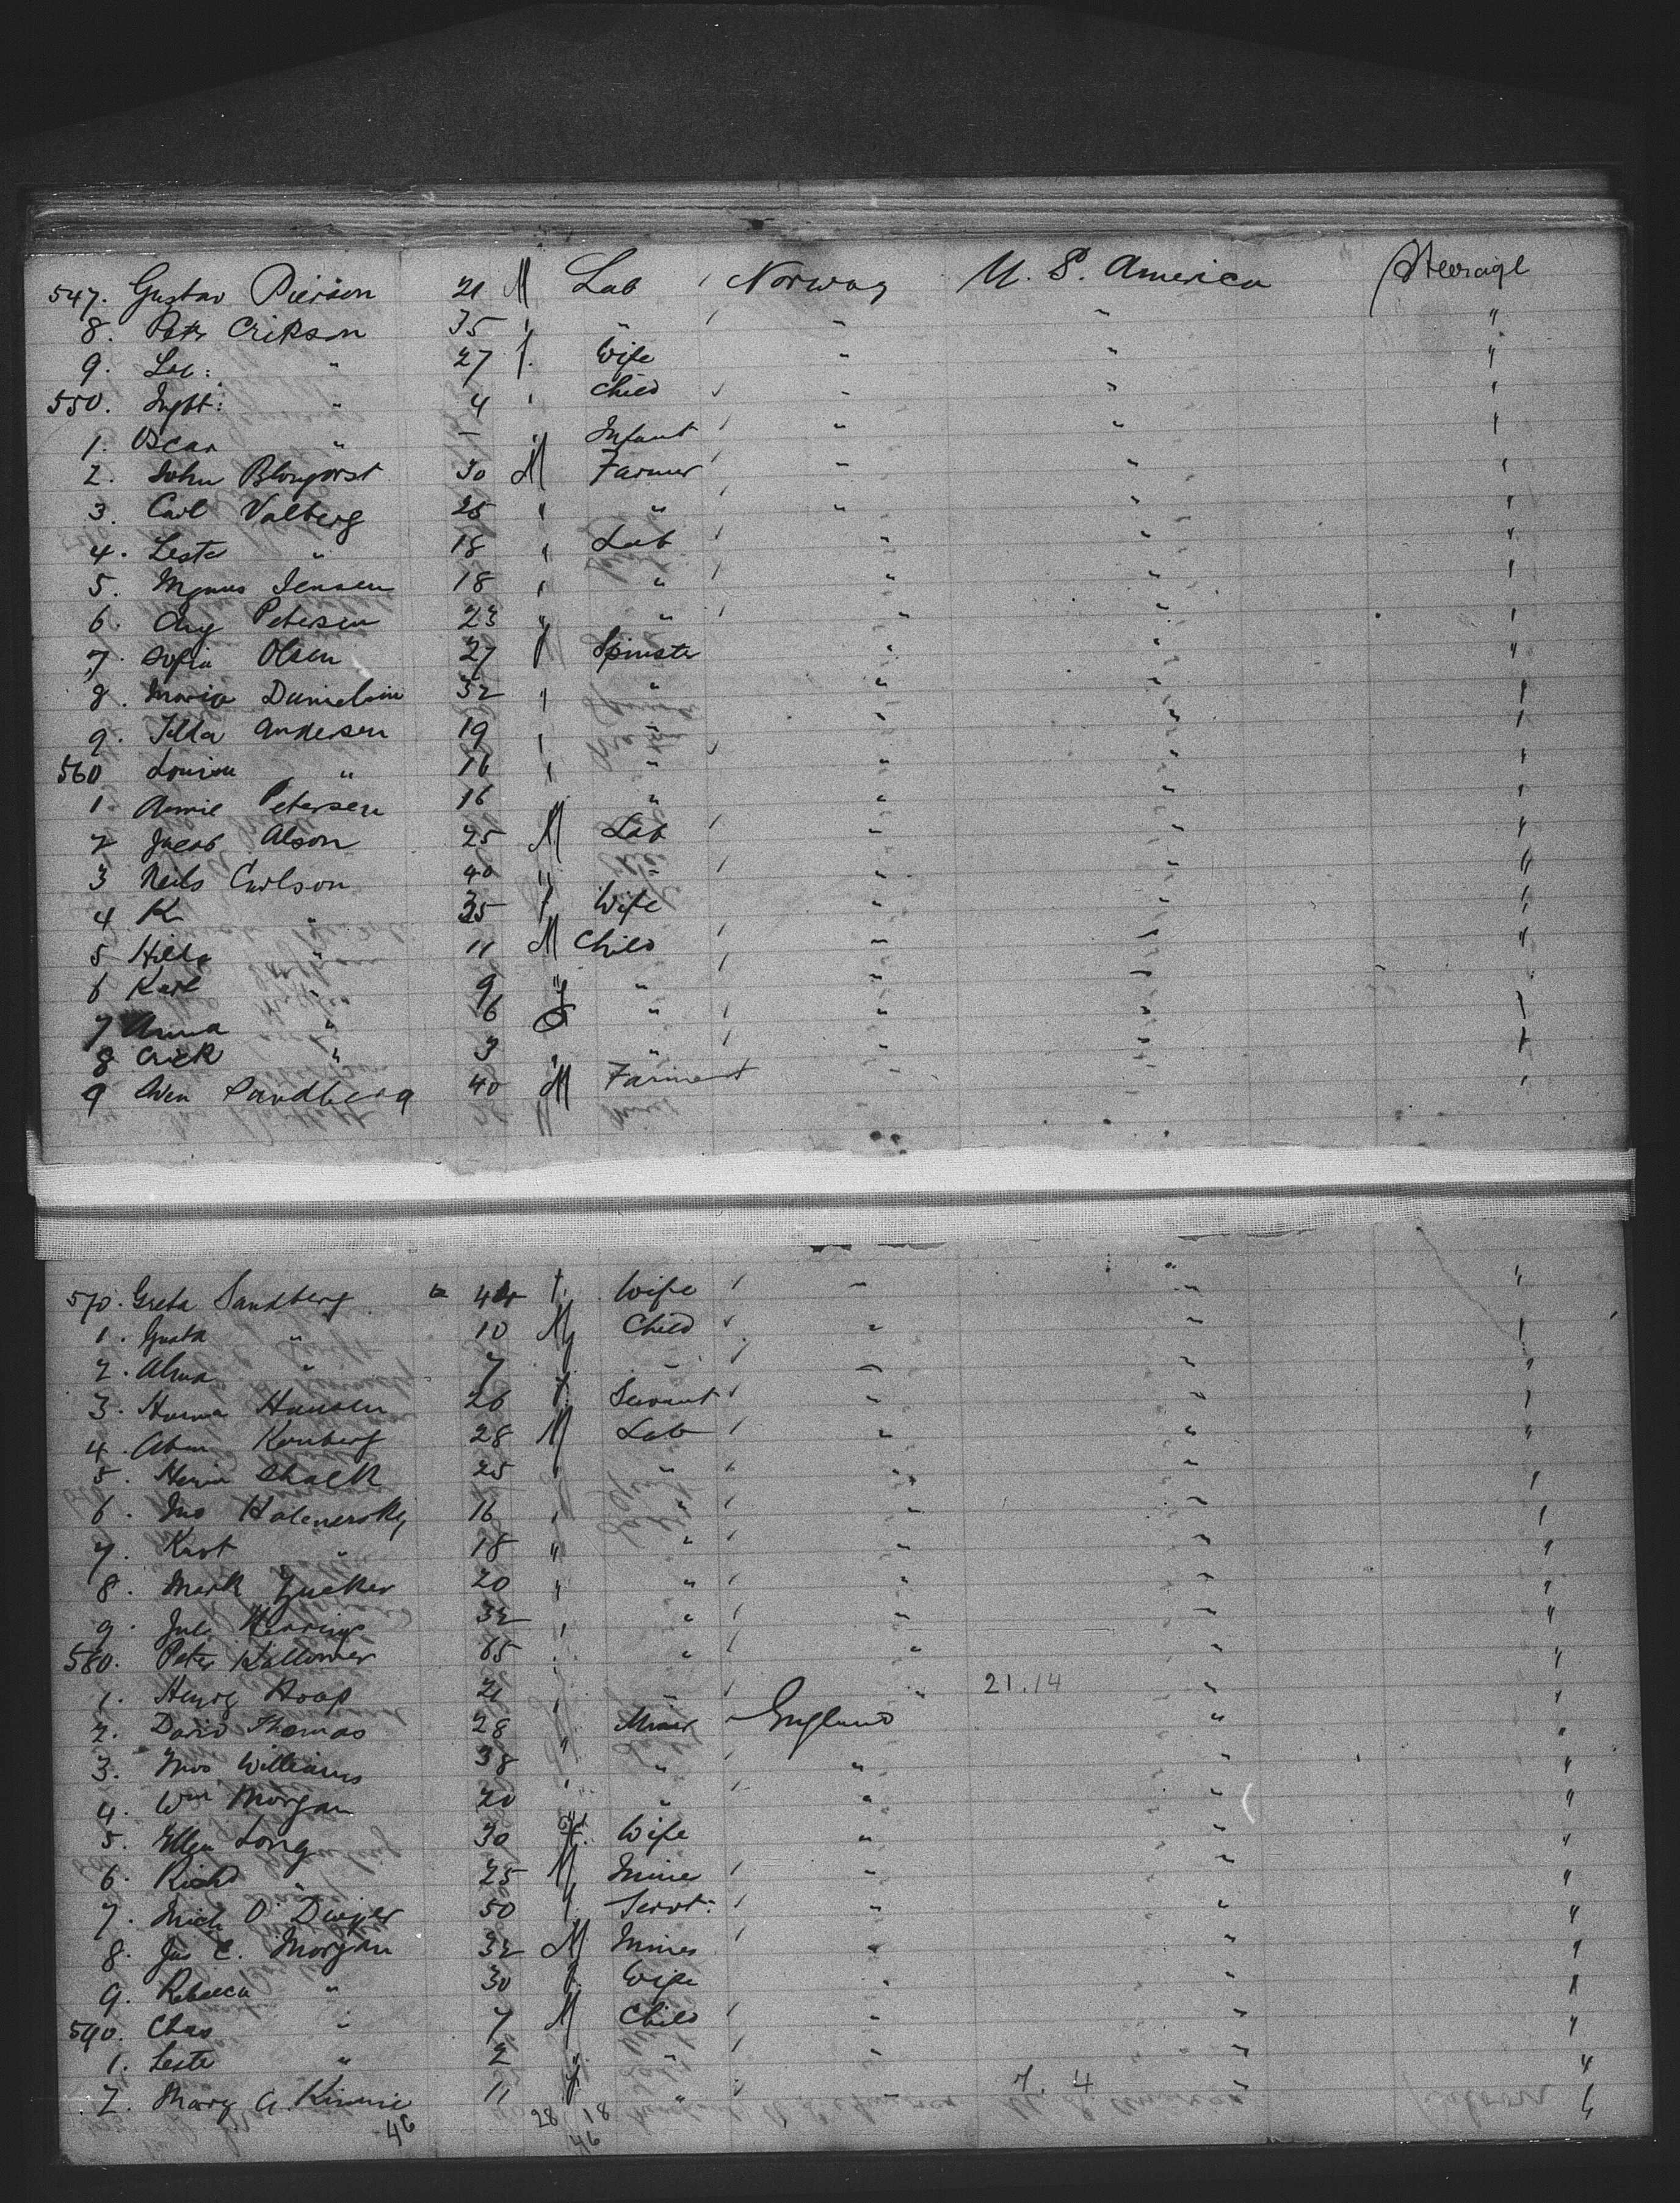 547. Gustav Pierson 21 M Lab / Norway U. S. America Steerage
8. Petr Erikson 35 " " / " " "
9. " 27 f. Wife " " "
550. " 4 " Child " " "
1. Oscar " - " Infant / " " "
2. John 30 M Farmer / " " "
3. Carl Valberg 25 " " / " " "
4. Lesta " 18 " Lab / " " "
5. Mgnus Jensen 18 " " / " " "
6. Aug Petersen 23 " " / " " "
7. Sofia Olsen 27 f Spinster " " "
8. Maria Danielson 32 " " " " "
9. Tilda Andersen 19 " " " " "
560 Louisa " 16 " " " " "
1. Annie Petersen 16 " " " " "
2 Jacob Alson 25 M Lab / " " "
3 Neils Carlson 40 " " / " " "
4 K " 35 f Wife " " "
5 Hilda " 11 M Child / " " "
6 Karl " 9 " " / " " "
7 Anna " 6 f " / " " "
8 Erick " 3 " " / " " "
9 Sandberg 40 M Farmer " "
570. Greta Sandberg 44 f. Wife / " " "
1. Gusta " 10 M Child " " "
2. Alma " 7 f " " " "
3. Hansen 26 f. Servant / " " "
4. Abm Kornberg 28 M Lab / " " "
5. Chalk 25 " " / " " "
6. Jno 16 " " / " " "
7. " 18 " " / " " "
8. Mark Zucker 20 " " / " " "
9. 32 " " / " " "
580. Peter 65 " " / " " "
1. Henry Hoap 21 " " / " 21.14 " "
2. David Thomas 28 " Miner England " "
3. Thos Williams 38 " " / " " "
4. Wm Morgan 20 " " / " " "
5. Ellen Long 30 f. Wife " " "
6. Richd " 25 M Miner / " " "
7. Mich O'Dwyer 50 f. Servt. / " " "
8. Jas E. Morgan 32 M Miner / " " "
9. Rebecca " 30 f. Wife " " "
590. Chas " 7 M Child / " " "
1. Leste " 2 f " / " " "
2. Mary A. Kinnie 11 " " " 7. 4 " "
46 28 18
46